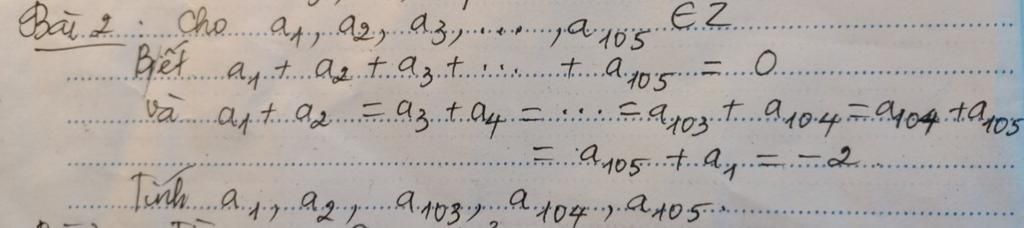 Bài 2 : Cho a₁, a₂, a₃, ..., a₁₀₅ ∈ Z
Biết a₁ + a₂ + a₃ + ... + a₁₀₅ = 0
và a₁ + a₂ = a₃ + a₄ = ... = a₁₀₃ + a₁₀₄ = a₁₀₄ + a₁₀₅
= a₁₀₅ + a₁ = -2
Tính a₁, a₂, a₁₀₃, a₁₀₄, a₁₀₅.